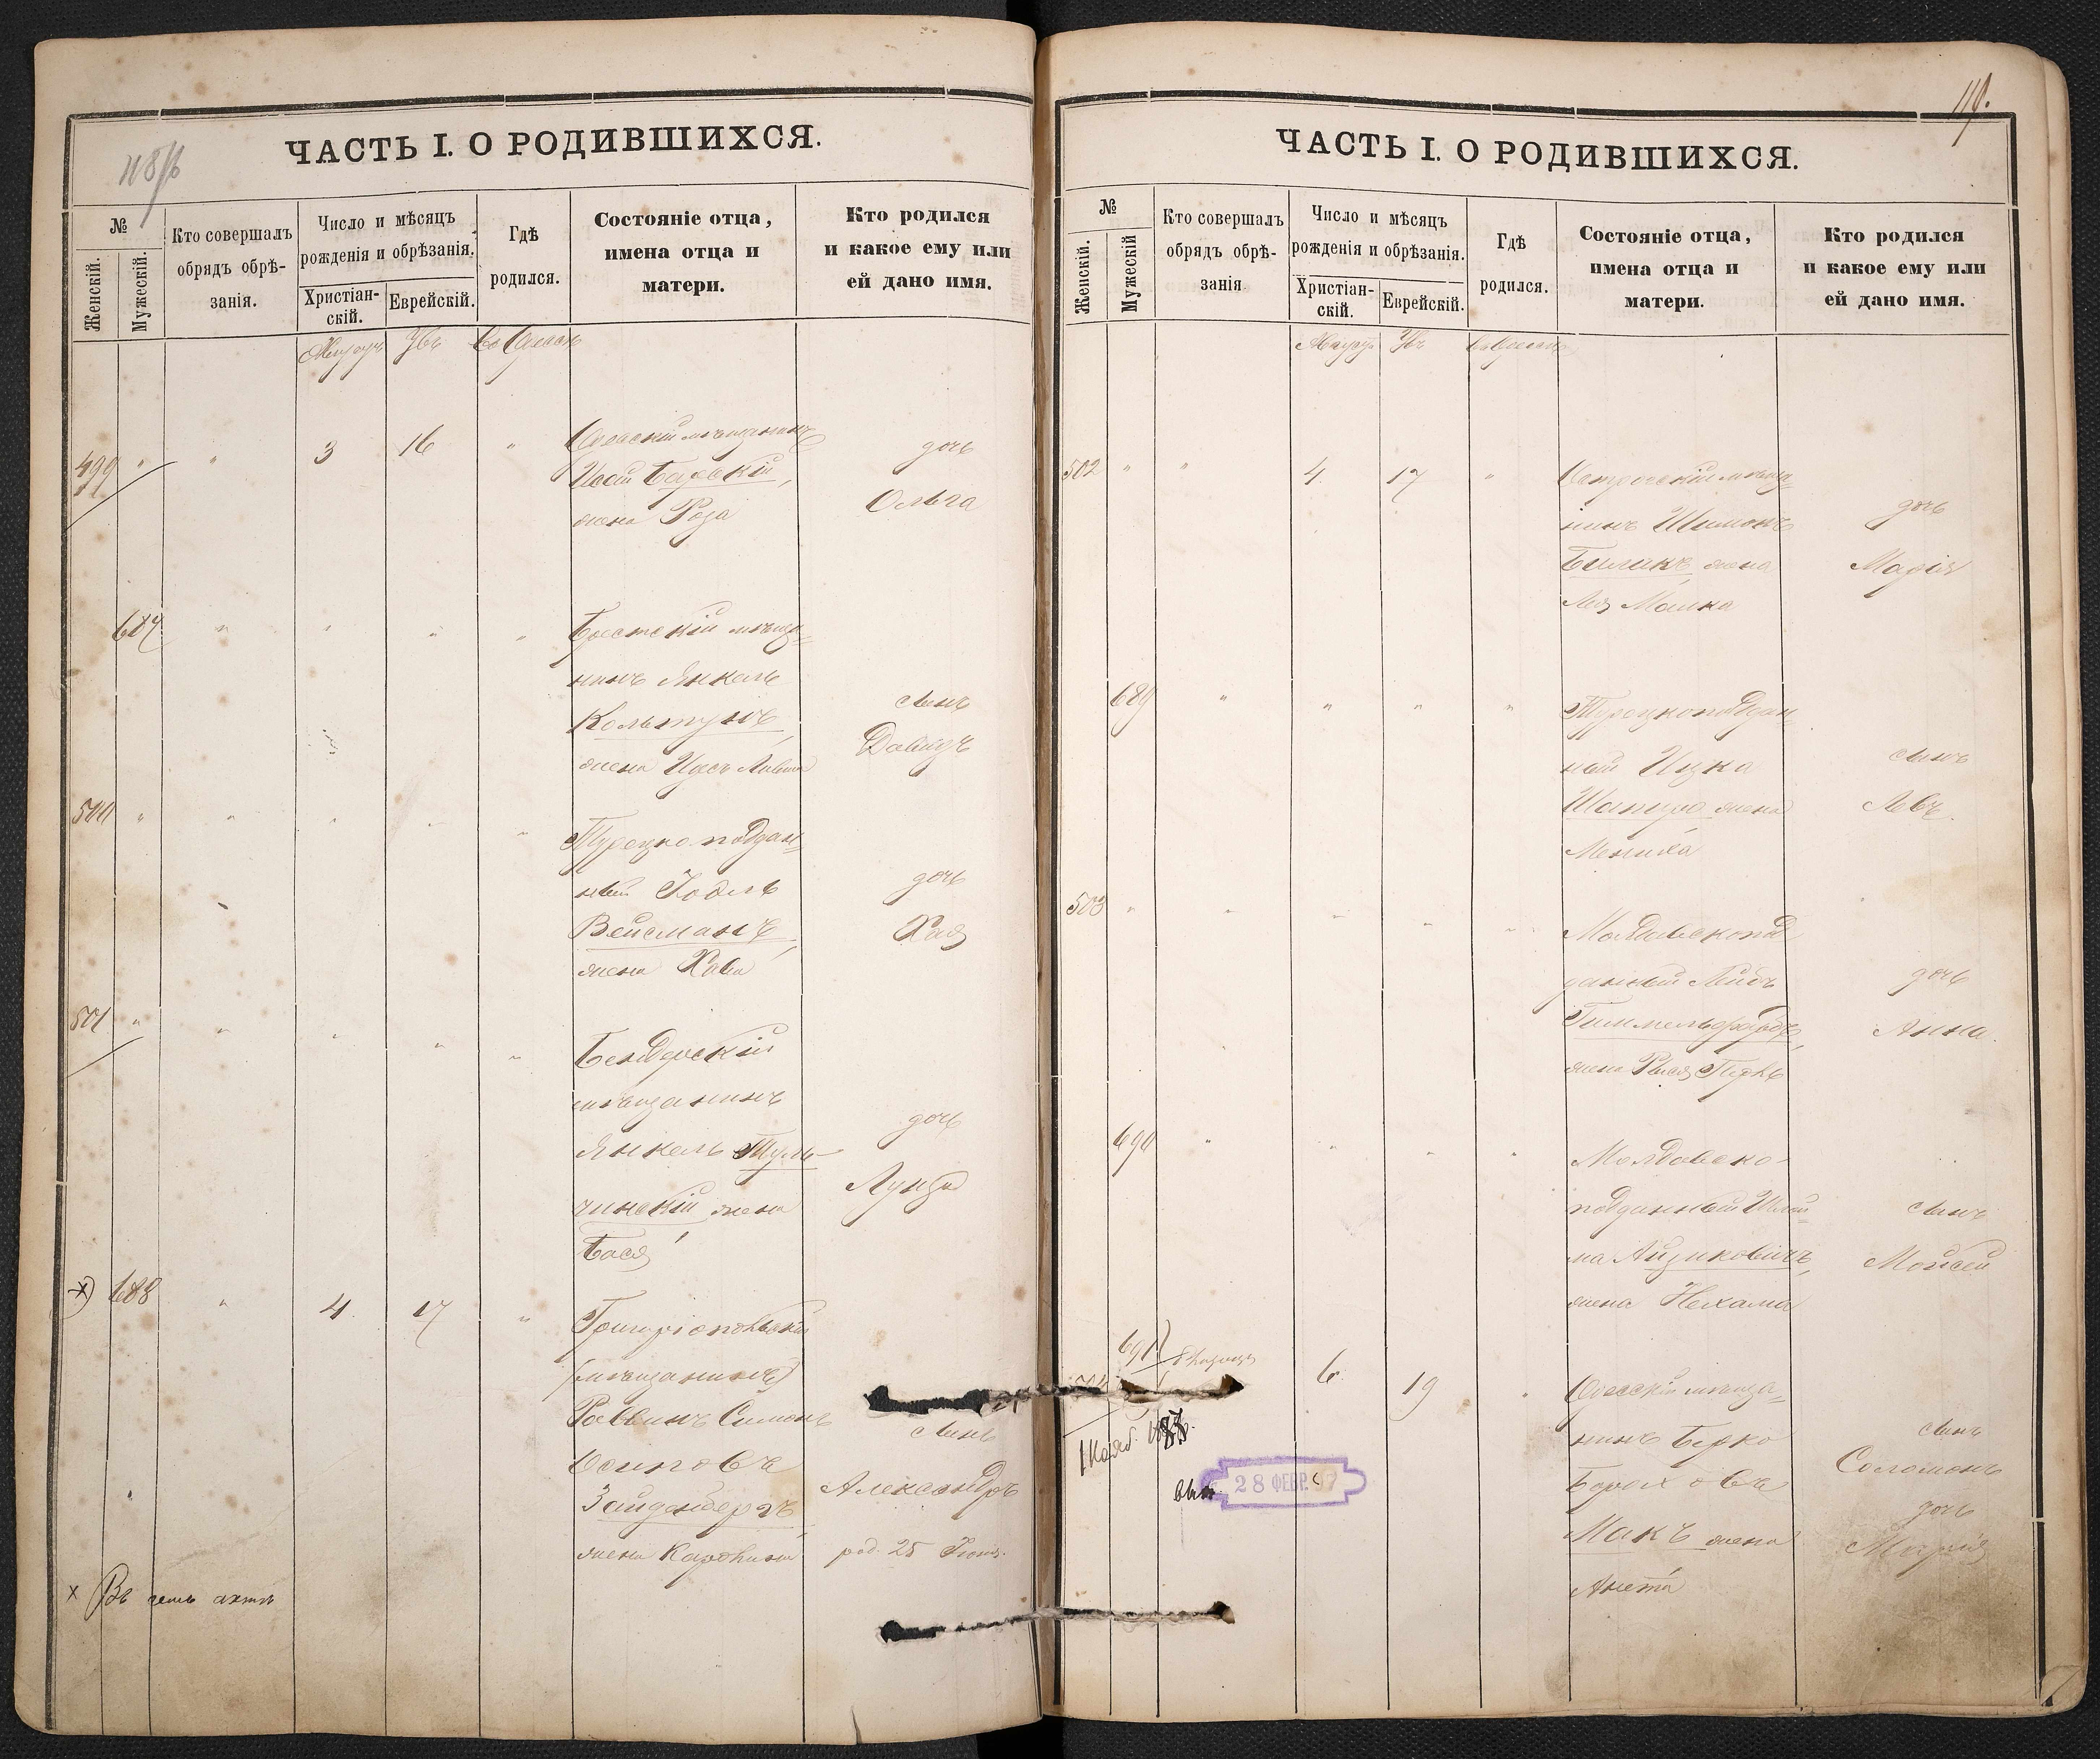 118/b
ЧАСТЬ I. О РОДИВШИХСЯ.
№
Женскій.
Мужескій.
Кто совершалъ
обрядъ обрѣ-
занія.
Число и мѣсяцъ
рожденія и обрѣзанія.
Христіан-
скій.
Еврейскій.
Гдѣ
родился.
Состояніе отца,
имена отца и
матери.
Кто родился
и какое ему или
ей дано имя.
499 " " 3 16 "
Одесскій мѣщанинъ
Барскій,
жена Роза
дочь
Ольга
687 " " " "
Брестскій мѣща-
нинъ Янкель
Колтунъ,
жена
сынъ
Давидъ
500 " " " " "
Турецко-поддан-
ный Годель
Вейсманъ,
жена Хава
дочь
Хая
501 " " " " "
Бендерскій
мѣщанинъ
Янкель Туль-
чинскій жена
Бася
дочь
х) 688 " 4 17 "
Григоріопольскій
(мѣщанинъ)
Раввинъ Симонъ
Осиповъ
Зайденбергъ,
жена Каролина
сынъ
Александръ
род. 25
х Въ семъ актѣ
119.
ЧАСТЬ I. О РОДИВШИХСЯ.
№
Женскій.
Мужескій
Кто совершалъ
обрядъ обрѣ-
занія
Число и мѣсяцъ
рожденія и обрѣзанія.
Христіан-
скій.
Еврейскій.
Гдѣ
родился.
Состояніе отца,
имена отца и
матери.
Кто родился
и какое ему или
ей дано имя.
502 " " 4 17 "
Островскій мѣща-
нинъ Шимонъ
Биликъ, жена
Лея Малка
дочь
Марія
689 " " " "
Турецкоподдан
ный Ицка
Шапиро жена
Мениха
сынъ
Левъ.
503 " " " " "
Молдавскопод
данный Лейбъ
Гиммельфарбъ,
жена Рыся Перль
дочь
Анна.
690 " " " "
Молдавско-
подданный Шлей-
ма Айзиковичъ,
жена Нехама
сынъ
Мойсей
691 6 19 "
Одесскій мѣща-
нинъ Берко
Бороховъ
Макъ жена
Анета
сынъ
Соломонъ
дочь
Марія
28 ФЕВР. 97